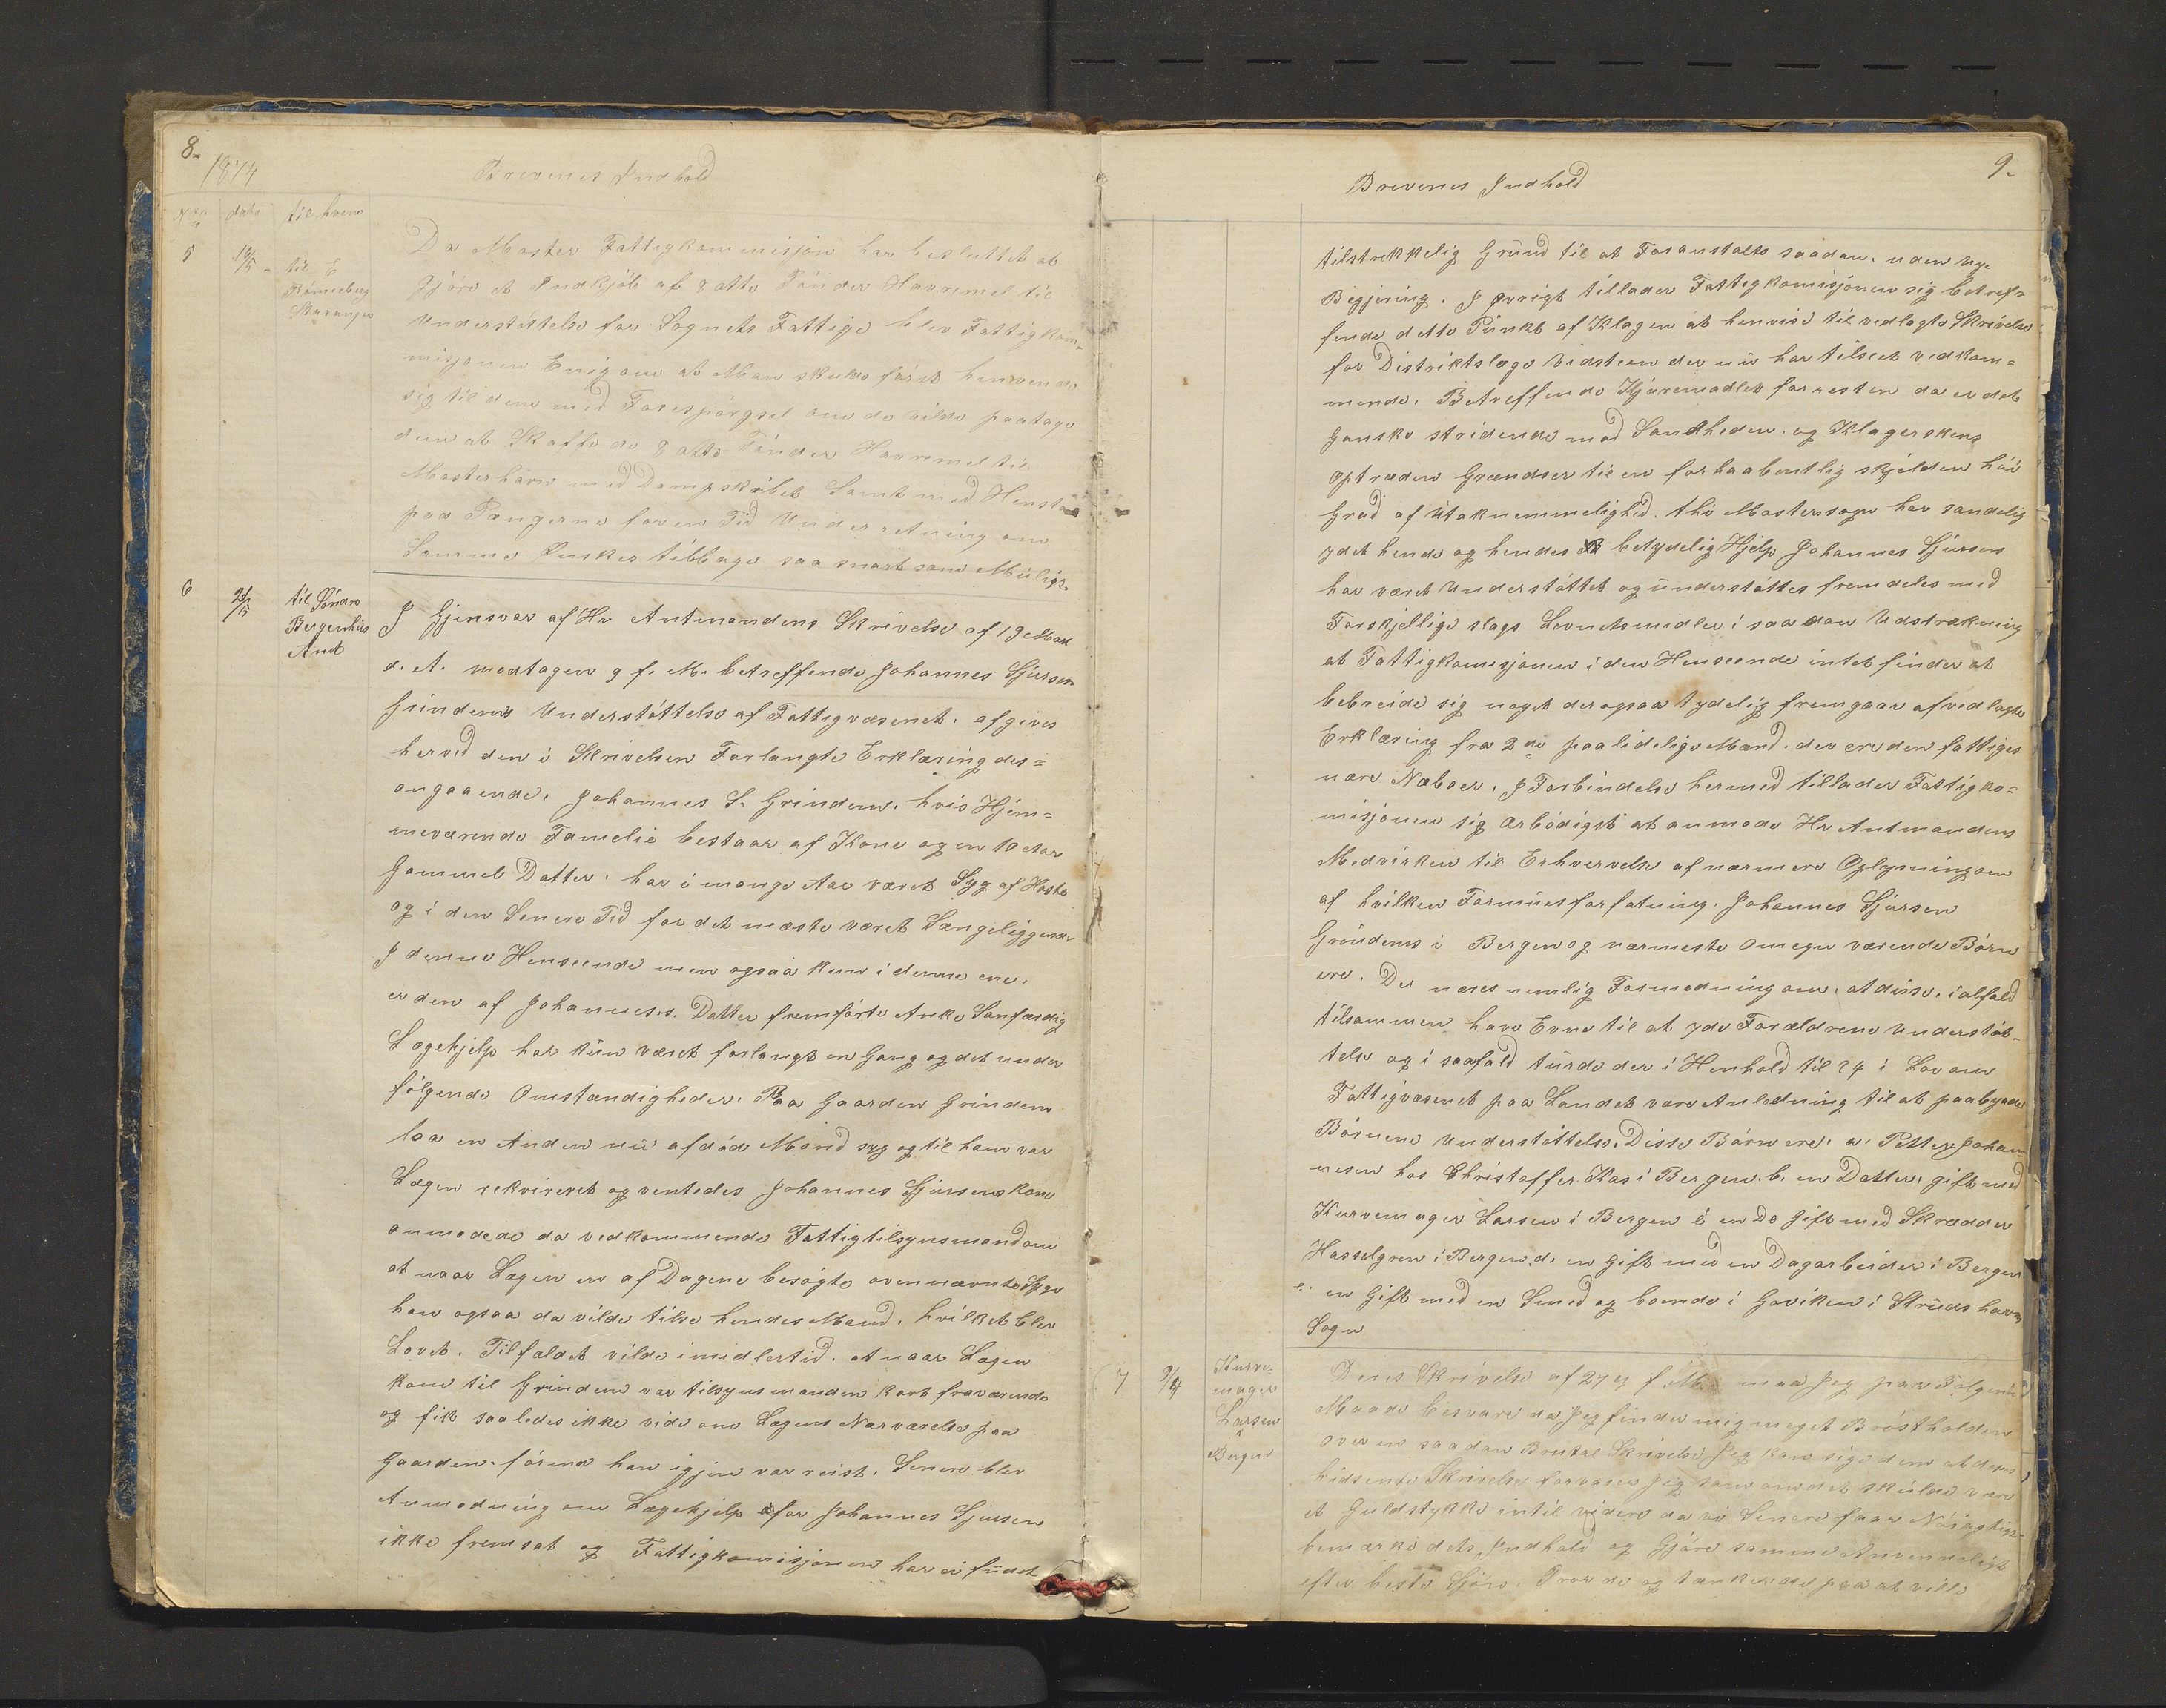 8.
1874
Brevenes Indhold
No
dato
til hvem
5
til E
Rönneberg
Stavanger
Da Moster Fattigkommisjon har besluttet at
Gjöre et Indkjöb af 8 otte Tönder Havremel til
Understöttelse for Sognets Fattige blev Fattigkom=
misjonen Enig om at Man skulde först henvende
sig til dem med Forespörgsel om de vilde paatage
dem at Skaffe de 8 otte Tönder Havremel til
Mosterhavn med Dampskibet Samt med Henstand
paa Pengerne for en Tid Underretning om
Samme Önskes tilbage saa snart som Muligt.
6
til Söndre
Bergenhus
Amt
I Gjensvar af Hr Amtmandens Skrivelse af 19 Mai
d. A. modtagen 9 f. M. betreffende Johannes Sjursen
Grindems Understöttelse af Fattigvæsenet. afgives
herved den i Skrivelsen Forlangte Erklæring des=
angaaende. Johannes S. Grindem. hvis Hjem=
meværende Famelie bestaar af Kone og en 10 Aar
Gammel Datter. har i mange Aar været Syg af Hoste
og i den Senere Tid for det meste været Sængeliggende
I denne Henseende men ogsaa kun i denne ene.
er den af Johanness. Datter fremförte Anke Sanfærdig
Lægehjelp har kun været forlangt en Gang og det under
fölgende Omstændigheder. Paa Gaarden Grindem
laa en Anden nu afdöd Mand syg og til ham var
Lægen rekvireret og ventedes Johannes Sjursens kone
anmodede da vedkommende Fattigtilsynsmand om
at naar Lægen en af Dagene besögte ovennævnte Syge
han ogsaa da vilde tilse hendes Mand. hvilket blev
Lovet. Tilfaldet vilde imidlertid. at naar Lægen
kom til Grindem var tilsynsmanden kort fraværende
og fik saaledes ikke vide om Lægens Nærværelse paa
Gaarden. förend han igjen var reist. Senere blev
Anmodning om Lægehjelp for Johannes Sjursen
ikke fremsat og Fattigkomisjonen har ei fundet
9.
Brevenes Indhold
tilstrekkelig Grund til at Foranstalte saadan. uden
Begjering. I övrigt tillader Fattigkomisjonen sig betref=
fende dette Punkt af Klagen at henvise til vedlagte Skrivelse
for Distriktslæge Vidsteen der nu har tilseet vedkom=
mende. Betreffende Kjæremaalet forresten da er det
Ganske stridende mod Sandheden. og Klagerskens
optræden Grændser til en forhaabentlig skjelden höi
Grad af Utaknemmelighed. thi Mostersogn har sandelig
ydet hende og hendes betydelig Hjelp Johannes Sjursen
har været Understöttet og understöttes fremdeles med
Forskjellige slags Levnetsmidler i saadan Udstrækning
at Fattigkomisjonen i den Henseende intet finder at
bebreide sig noget der ogsaa tydelig fremgaar af vedlagte
Erklæring fra 2de paalidelige Mænd. der ere den fattiges
nære Naboer. I Forbindelse hermed tillader Fattigko=
misjonen sig ærbödigst at anmode Hr Amtmandens
Medvirken til Erhvervelse af nærmere Oplysning om
af hvilken Formuesforfatning. Johannes Sjursen
Grindems i Bergen og nærmeste Omegn værende Börn
ere. Der næres nemlig Formodning om. at disse. ialfald
tilsammen have Evne til at yde Forældrene Understöt-
telse og i saafald turde der i Henhold til 24 i Lov om
Fattigvæsenet paa Landet være Anledning til at paabyrde
Börnene Understöttelse. Disse Börn ere. a. Petter Johan-
nesen hos Christoffer Kas i Bergen. b. en Datter. gift med
Kurvemager Larsen i Bergen c en Do Gift med Skrædder
Hasselgren i Bergen d. en Gift med en Dagarbeider i Bergen
e. en Gift med en Smed og boende i Goviken i Strudshavn
Sogn
7
9/4
Kurve-
mager
Larsen
Bergen
Deres Skrivelse af 27 f. M. maa Jeg paa Fölgende
Maade besvare da Jeg finder mig meget Bröstholden
over en saadan Brutal Skrivelse Jeg kan sige dem at deres
hidsente Skrivelse forvarer Jeg som om det skulde være
et Guldstykke intil videre da vi Senere faar Nöiagtigt
bemærke dets Indhold og Gjöre samme Anvendeligt
efter beste Skjön. Tror de og tænker de paa at ville